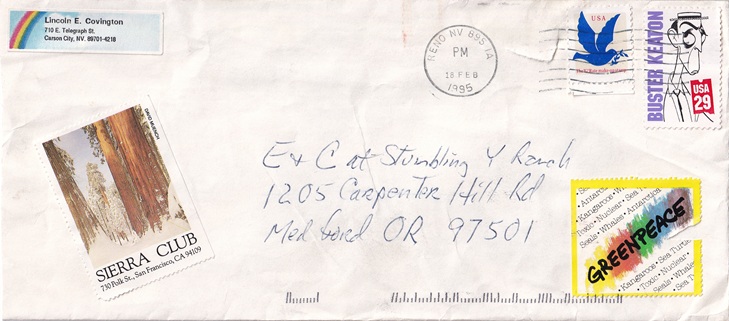 Lincoln E. Covington
710 E. Telegraph St.
Carson City, NV. 89701-4218
RENO NV 895 1A
PM
18 FEB
1995
USA
BUSTER KEATON
USA
29
DAVID MUENCH
SIERRA CLUB
730 Polk St., San Francisco, CA 94109
E & C at Stumbling Y Ranch
1205 Carpenter Hill Rd
Medford OR 97501
Antarctica
Kangaroos • W
Toxic • Nuclear • Sea T
Seals • Whales • Antarctica
GREENPEACE
Kangaroos • Sea Turtle
Toxic • Nuclear •
Seals • Whale